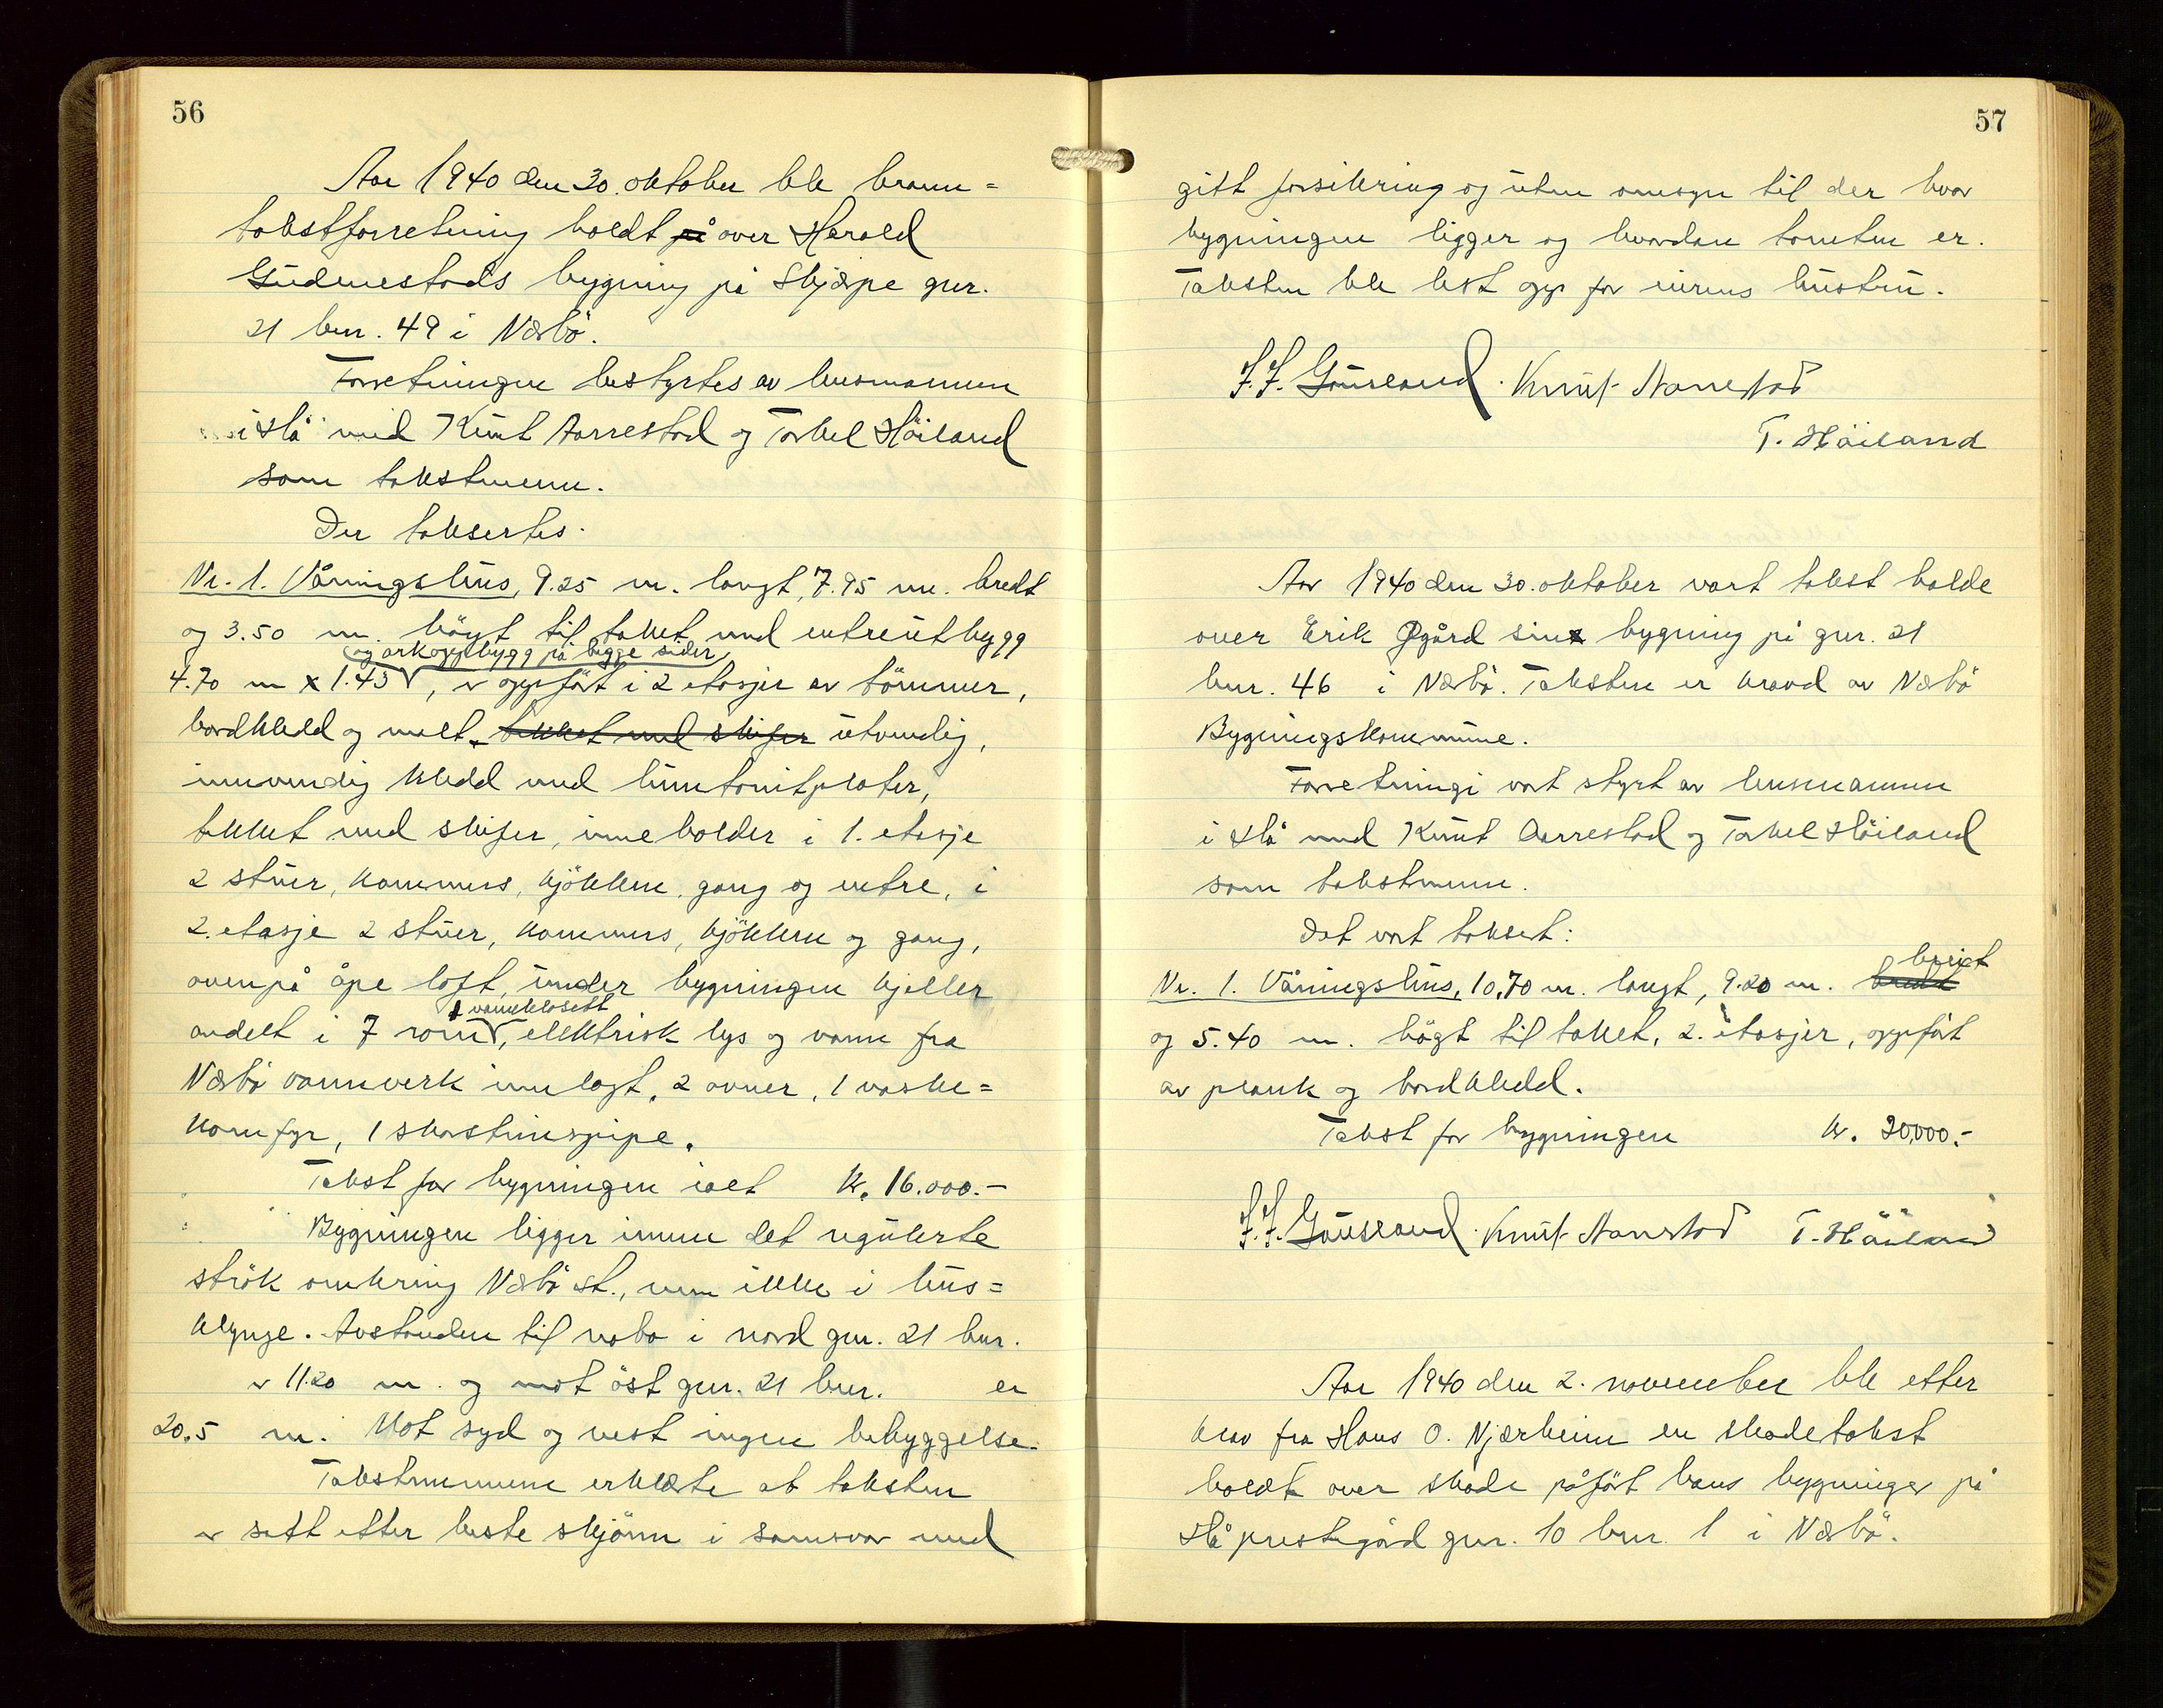 56
Aar 1940 den 30. oktober ble brann=
takstforretning holdt på over Harald
Gudmestads bygning på Skjærpe gnr.
21 bnr. 49 i Nærbö.
Forretningen bestyrtes av lensmannen
i Hå med Knut Aarrestad og Torkel Höiland
som takstmenn.
Der taksertes.
Nr. 1. Våningshus, 9.25 m. langt, 7.95 m. bredt
og 3.50 m. högt til taket med entreutbygg
og arkoppbygg på begge sider
4.70 m x 1.45, er oppfört i 2 etasjer av tömmer,
bordkledd og malt. tekket med skifer utvendig,
innvendig kledd med huntonitplater,
tekket med skifer, inneholder i 1. etasje
2 stuer, kammers, kjökken, gang og entre, i
2. etasje 2 stuer, kammers, kjökken og gang,
ovenpå åpe loft, under bygningen kjeller
1 vannklosett
avdelt i 7 rom, elektrisk lys og vann fra
Nærbö vannverk innlagt, 2 ovner, 1 vaske=
komfyr, 1 skorstinspipe.
Takst for bygningen ialt kr. 16.000.-
Bygningen ligger innen det regulerte
strök omkring Nærbö st., men ikke i hus=
klynge. Avstanden til nabo i nord gnr. 21 bnr.
er 11.20 m. og mot öst gnr. 21 bnr. er
20.5 m. Mot syd og vest ingen bebyggelse.
Takstmennene erklærte at taksten
er satt etter beste skjönn i samsvar med
57
gitt forsikring og uten omsyn til der hvor
bygningen ligger og hvordan tomten er.
Taksten ble lest opp for eierens hustru.
J. J. Gausland. Knut Aarrestad
T. Höiland
Aar 1940 den 30. oktober vart takst halde
over Erik Øgård sin bygning på gnr. 21
bnr. 46 i Nærbö. Taksten er kravd av Nærbö
Bygningskommune.
Forretningi vart styrt av lensmannen
i Hå med Knut Aarrestad og Torkel Höiland
som takstmenn.
Det vart taksert:
breidt
Nr. 1. Våningshus, 10,70 m. langt, 9.20 m. bredt
og 5.40 m. högt til taket, 2. etasjer, oppfört
av plank og bordkledd.
Takst for bygningen kr. 20,000.-
J. J. Gausland. Knut Aarrestad T. Höiland
Aar 1940 den 2. november ble etter
krav fra Hans O. Njærheim en skadetakst
holdt over skade påfört hans bygninger på
Hå prestegård gnr. 10 bnr. 1 i Nærbö.